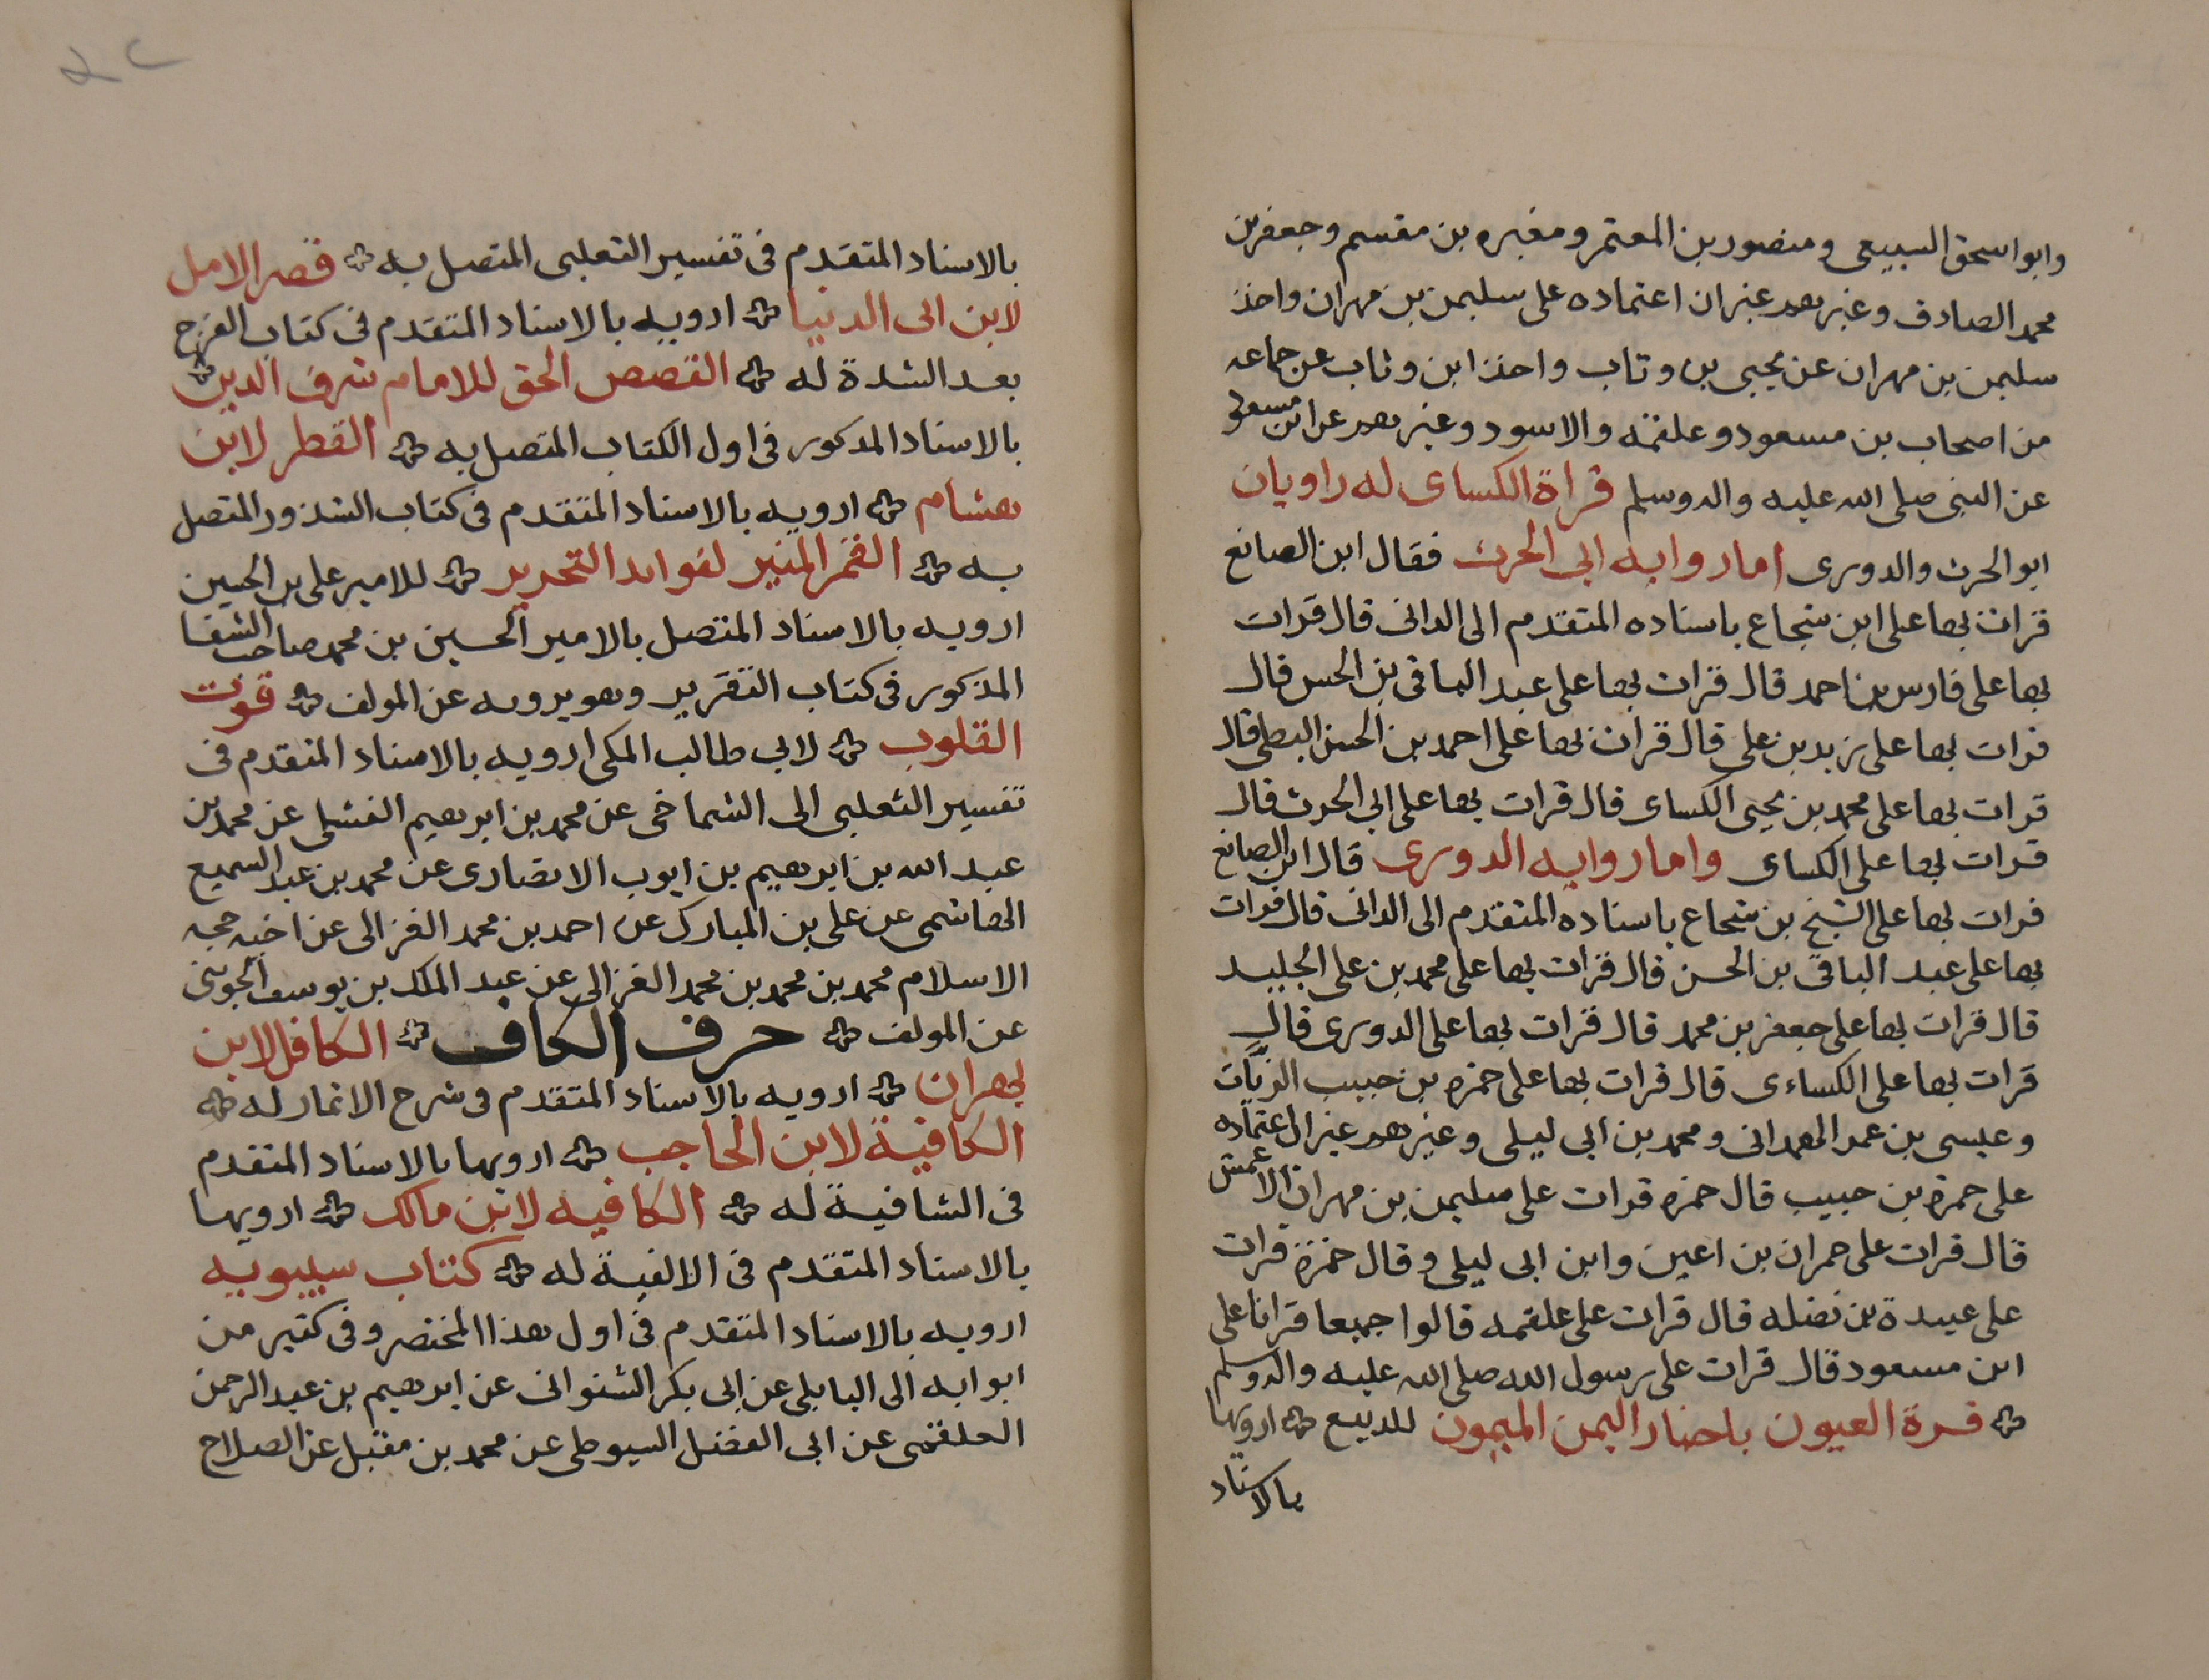 وابو اسحق السبيعى ومنصور بن المعتمر ومغيره بن مقسم وجعفر بن
محمد الصادق وغيرهم غير ان اعتماده على سليمن بن مهران واخذ
سليمن بن مهران عن يحيى بن وثاب واخذ ابن وثاب عن جماعه
من اصحاب بن مسعود وعلقمه والاسود وغيرهم عن ابن مسعود
عن النبى صلى الله عليه واله وسلم قراة الكساى له راويان
ابو الحرث والدورى اما روايه ابى الحرث فقال ابن الصانع
قرات بها على ابن شجاع باسناده المتقدم الى الدانى قال قرات
بها على فارس بن احمد قال قرات بها على عبد الباقى بن الحسن قال
قرات بها على زيد بن على قال قرات بها على احمد بن الحسن البطى قال
قرات بها على محمد بن يحيى الكساى قال قرات بها على ابي الحرث قال
قرات بها على الكساى واما روايه الدورى قال ابن الصانع
قرات بها على الشيخ بن شجاع باسناده المتقدم الى الدانى قال قرات
بها على عبد الباقى بن الحسن قال قرات بها على محمد بن على الجليد
قال قرات بها على جعفر بن محمد قال قرات بها على الدورى قال
قرات بها على الكساءى قال قرات بها على حمزه بن حبيب الزيات
وعيسى بن عمر الهمدانى ومحمد بن ابى ليلى وغيرهم غير ان اعتماده
على حمزة بن حبيب قال حمزه قرات على سليمن بن مهران الاعمش
قال قرات على حمران بن اعين وابن ابى ليلى وقال حمزة قرات
على عبيدة بن نضله قال قرات على علقمه قالوا جميعا قرانا على
ابن مسعود قال قرات على رسول الله صلى الله عليه واله وسلم
قرة العيون باخبار اليمن الميمون للديبع ارويها
بالاسناد
بالاسناد المتقدم فى تفسير الثعلبى المتصل به قصر الامل
لابن ابى الدنيا ارويه بالاسناد المتقدم فى كتاب الفرج
بعد الشدة له القصص الحق للامام شرف الدين
بالاسناد المذكور فى اول الكتاب المتصل به القطر لابن
هشام ارويه بالاسناد المتقدم فى كتاب الشذور المتصل
به القمر المنير لفوايد التحرير للامير على بن الحسين
ارويه بالاسناد المتصل بالامير الحسين بن محمد صاحب الشفا
المذكور فى كتاب التقرير وهو يرويه عن المولف قوت
القلوب لابي طالب المكى ارويه بالاسناد المتقدم فى
تفسير الثعلبى الى الشماخى عن محمد بن ابرهيم الفشلى عن محمد بن
عبد الله بن ابرهيم بن ايوب الانصارى عن محمد بن عبد السميع
الهاشمى عن على بن المبارك عن احمد بن محمد الغزالى عن اخيه حجه
الاسلام محمد بن محمد بن محمد الغزالى عن عبد الملك بن يوسف الجوينى
عن المولف حرف الكاف الكافل لابن
بهران ارويه بالاسناد المتقدم فى شرح الاثمار له
الكافية لابن الحاجب ارويها بالاسناد المتقدم
فى الشافية له الكافيه لابن مالك ارويها
بالاسناد المتقدم فى الالفية له كتاب سيبويه
ارويه بالاسناد المتقدم فى اول هذا المختصر وفى كثير من
ابوابه الى البابلى عن ابى بكر الشنوانى عن ابرهيم بن عبد الرحمن
العلقمى عن ابى الفضل السيوطى عن محمد بن مقبل عن الصلاح